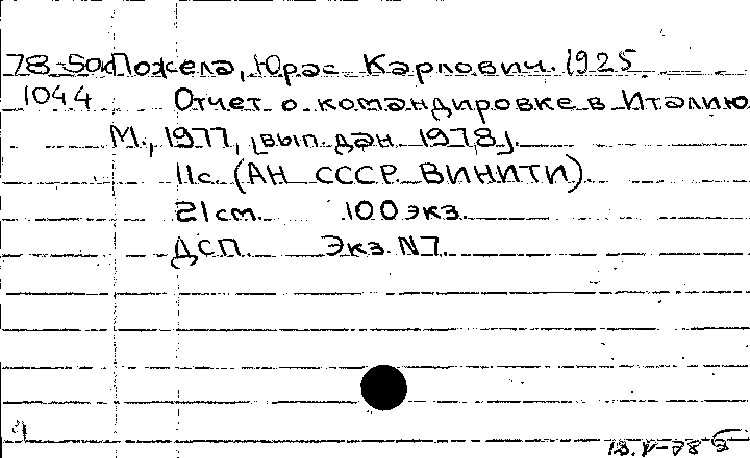 78-5од Пожела, Юрас Карлович. 1925
1044 Отчет о командировке в Италию
М., 1977, [вып. дан 1978].
11с. (АН СССР ВИНИТИ).
21 см. 100 экз.
ДСП. Экз. N7.
18.V-78